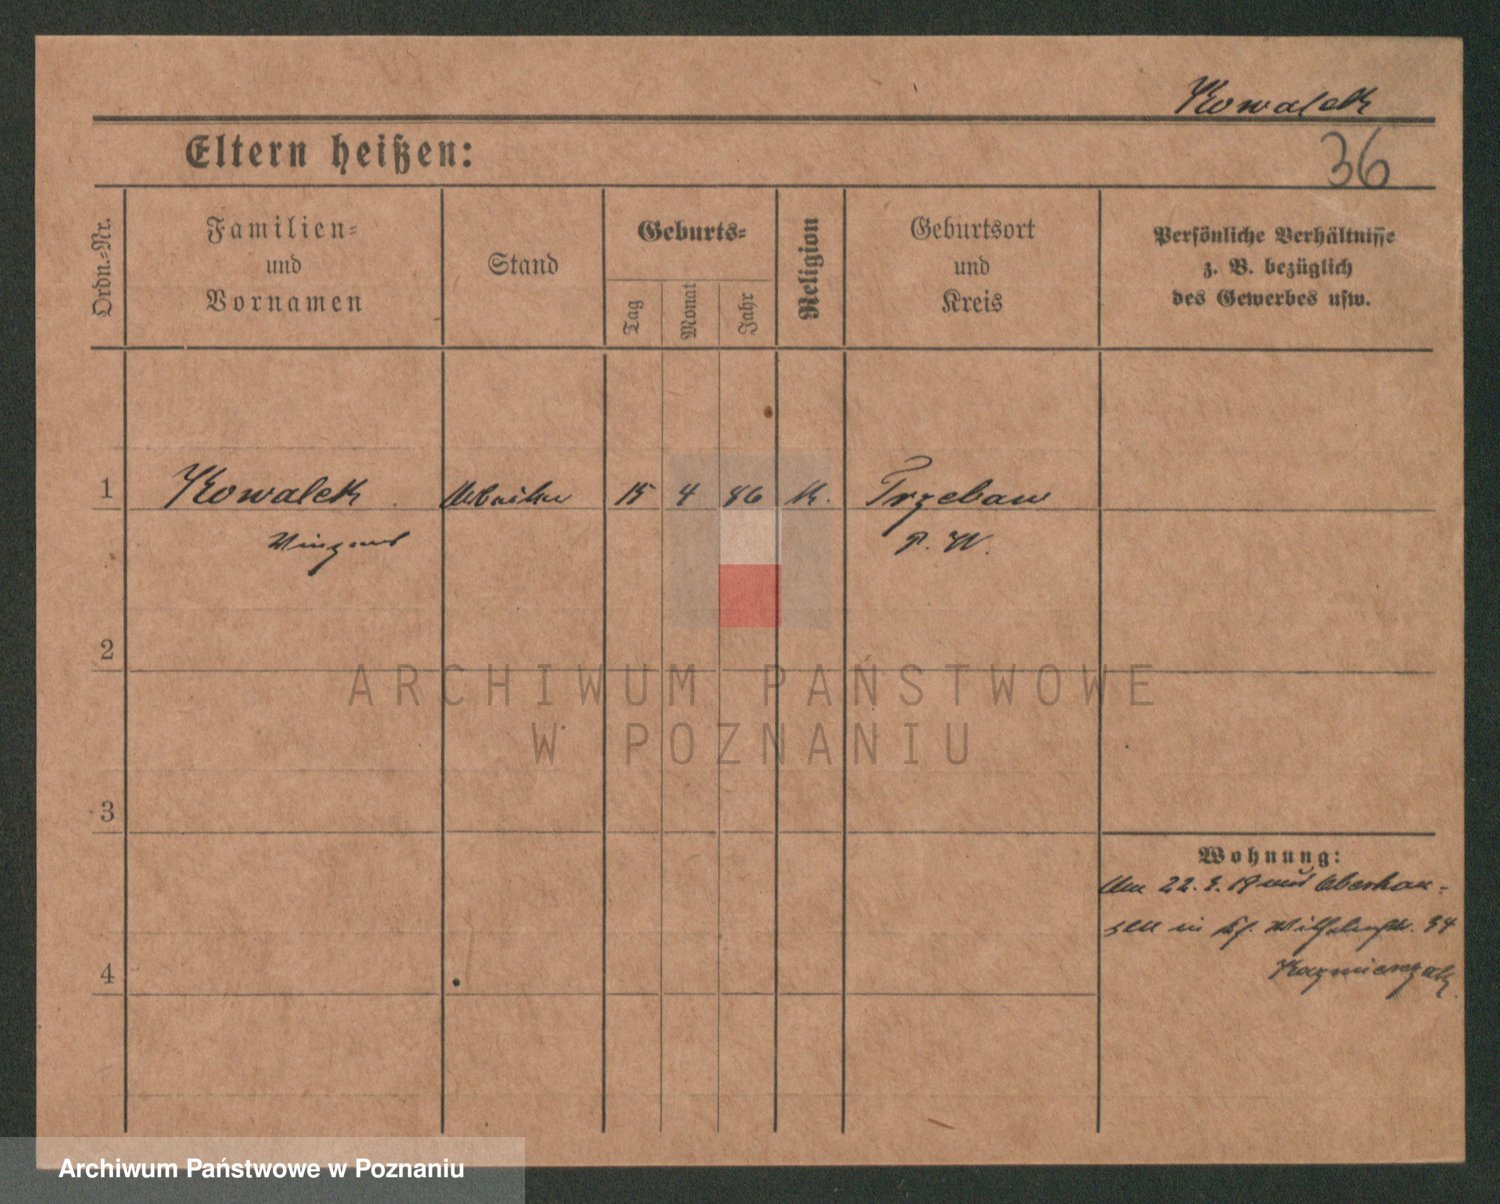 Kowalek
Eltern heißen:
36
Ordn.-Nr.
Familien-
und
Vornamen
Stand
Geburts-
Tag
Monat
Jahr
Religion
Geburtsort
und
Kreis
Persönliche Verhältnisse
z. B. bezüglich
des Gewerbes usw.
1
Kowalek
Arbeiter
15
4
86
K.
Trzebaw
Vinzent
P. W.
2
ARCHIWUM PAŃSTWOWE
W POZNANIU
3
Wohnung:
Am 22. 3. 19 aus Oberhau-
sen in Wilhelmstr. 34
Kazmierczak
4
Archiwum Państwowe w Poznaniu